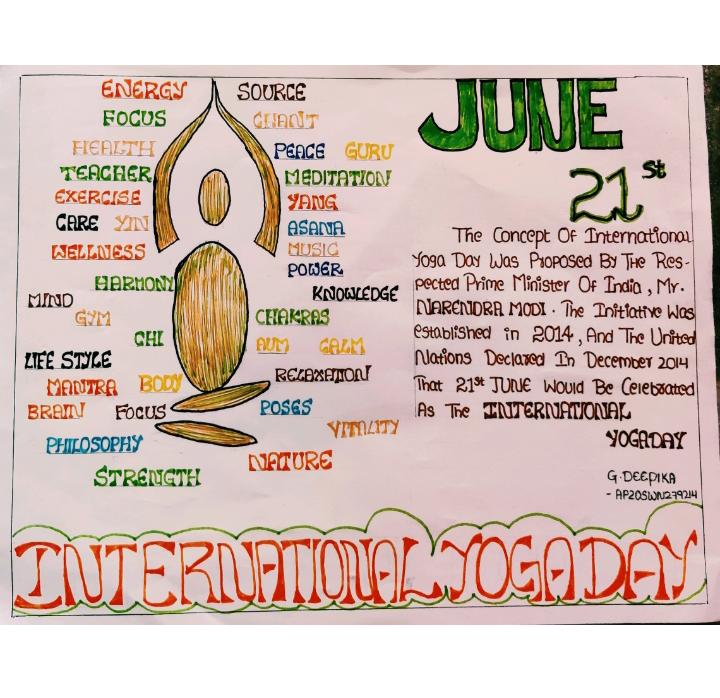 ENERGY SOURCE
FOCUS CHANT
HEALTH PEACE GURU
TEACHER MEDITATION
EXERCISE YANG
CARE YIN ASANA
WELLNESS MUSIC
HARMONY POWER
MIND KNOWLEDGE
GYM CHAKRAS
CHI AUM CALM
LIFE STYLE RELAXATION
MANTRA BODY
BRAIN FOCUS POSES
PHILOSOPHY VITALITY
STRENGTH NATURE
JUNE
21st
The Concept Of International
Yoga Day Was Proposed By The Res-
pected Prime Minister Of India, Mr.
NARENDRA MODI. The Initiative Was
established in 2014, And The United
Nations Declared In December 2014
That 21st JUNE Would Be Celebrated
As The INTERNATIONAL
YOGADAY
G. DEEPIKA
- AP20SWN279214
INTERNATIONAL YOGA DAY